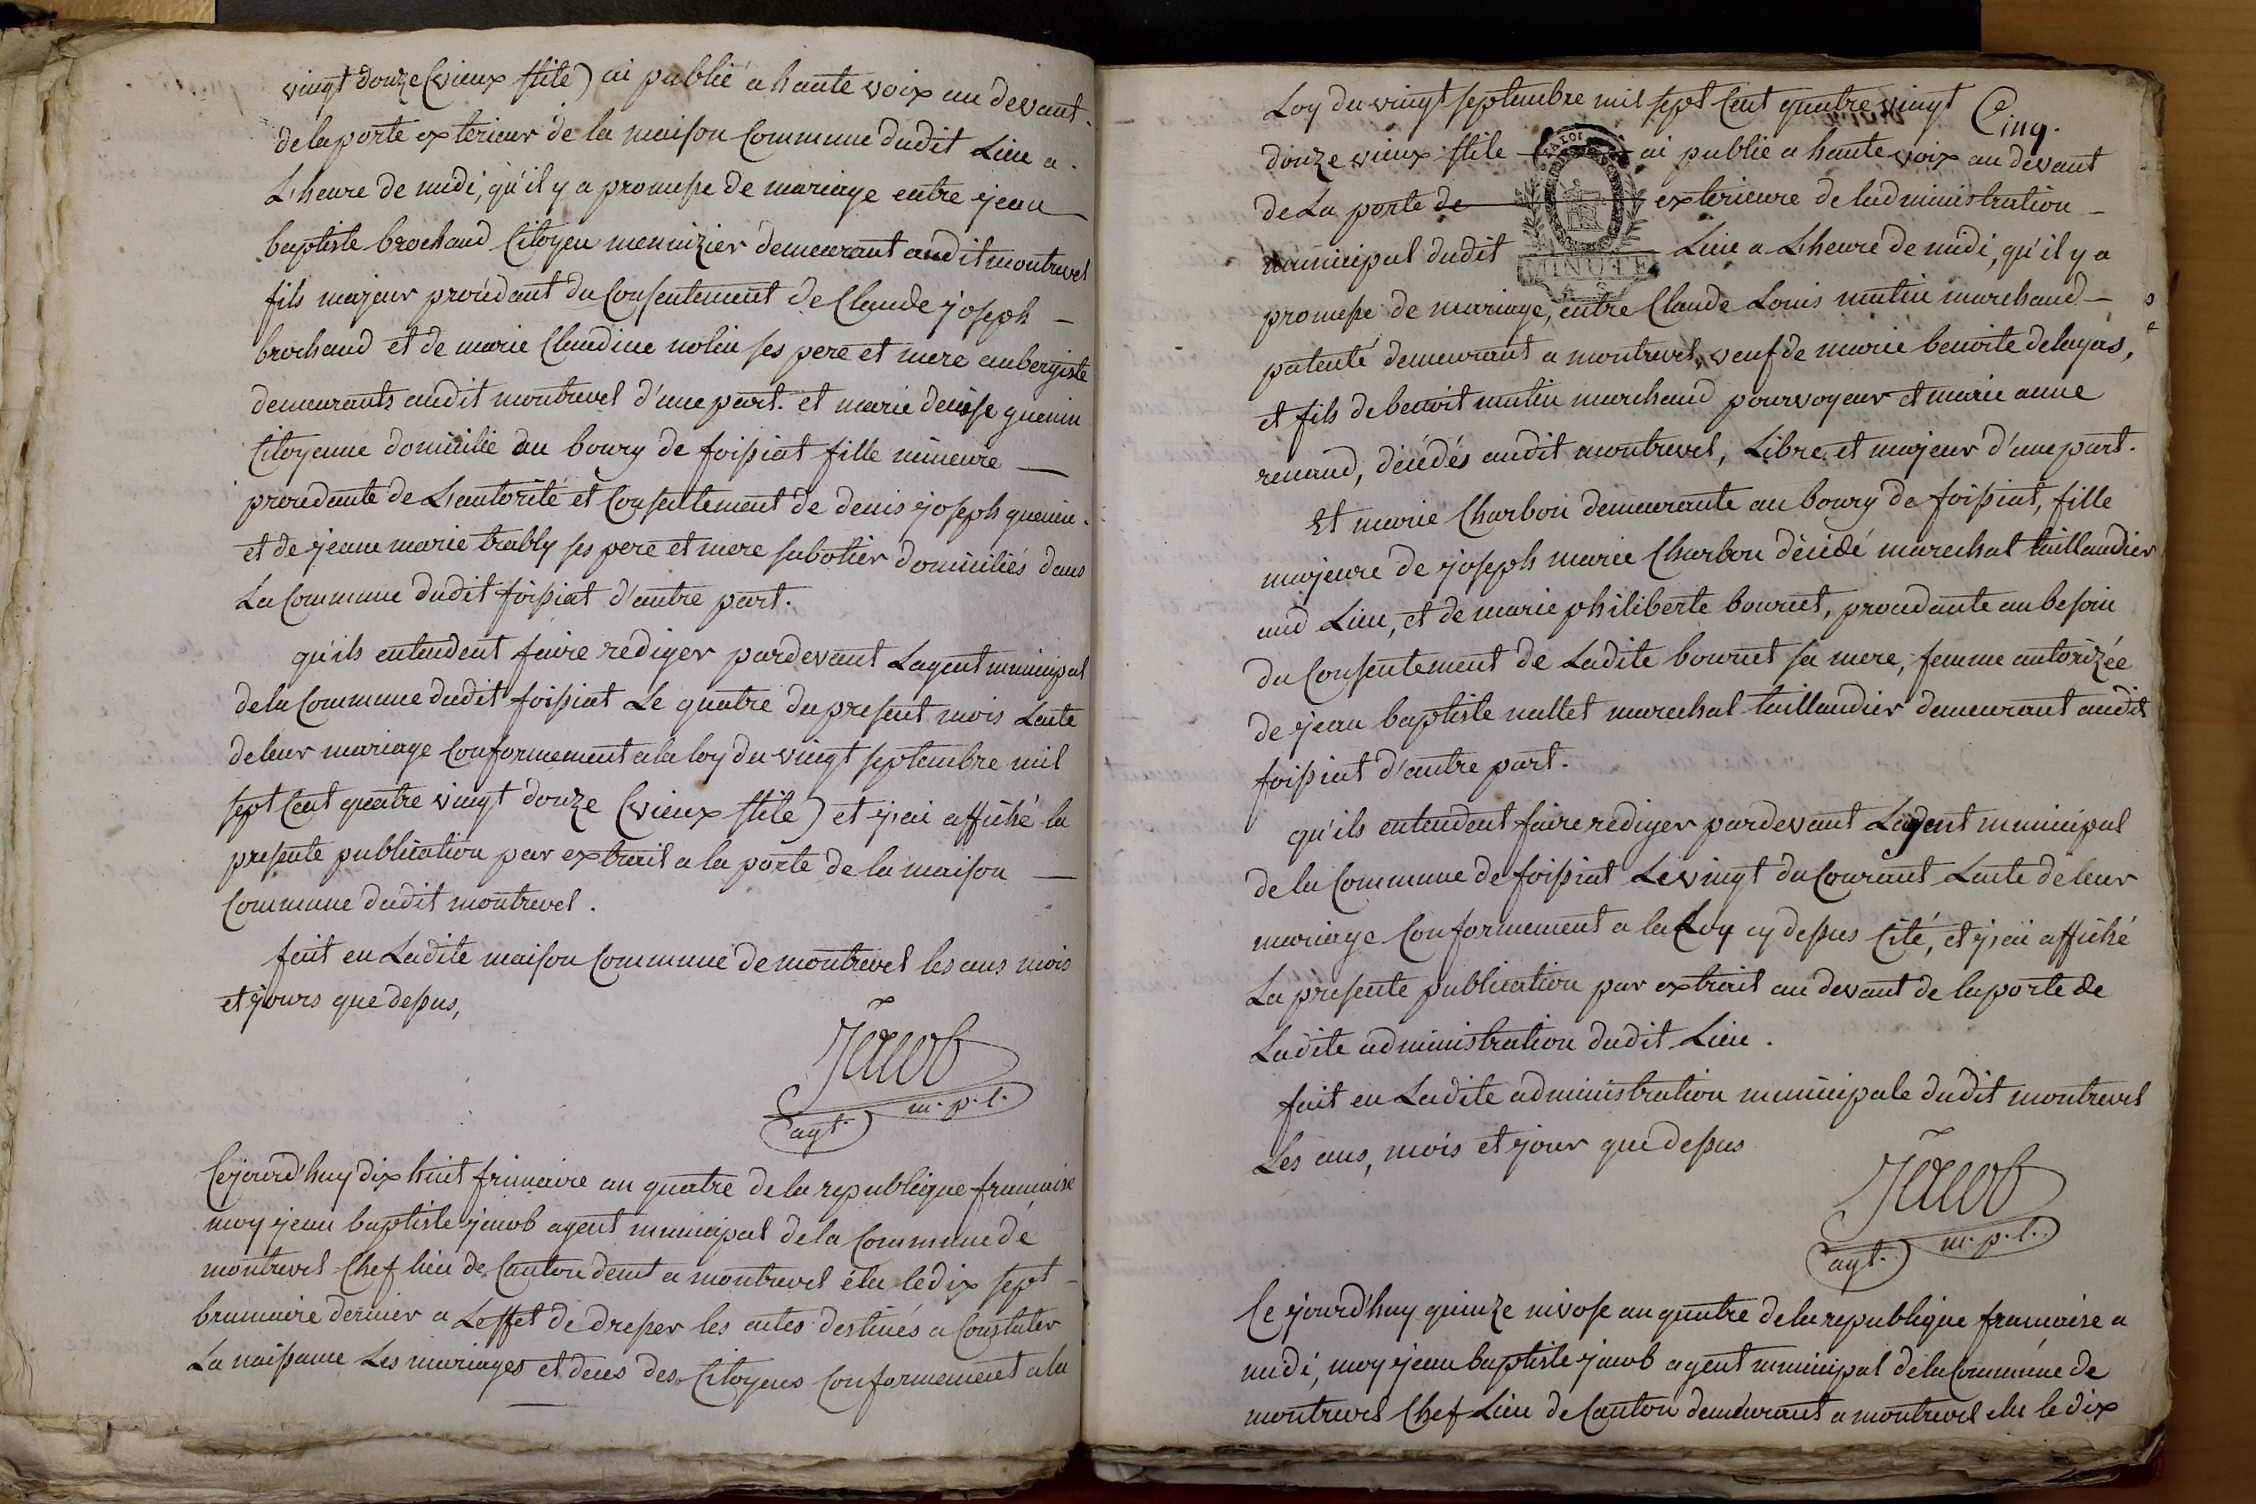 vingt douze (vieux stile) ai publié a haute voix au devant
de la porte exterieur de la maison Commune dudit Lieu a
L'heure de midi, qu'il y a promesse de mariage entre jean
baptiste brochand Citoyen menuizier demeurant audit montrevel
fils majeur procédant du Consentement de Claude joseph
brochand et de marie Claudine nolin ses pere et mere aubergiste
demeurants audit montrevel d'une part. et marie denise guenin
Citoyenne domicilié au bourg de foissiat fille mineure
procedante de L'autorité et Consentement de denis joseph guenin
et de jeane marie trably ses pere et mere sabotier domiciliés dans
La Commune dudit foissiat d'autre part.
qu'ils entendent faire rediger pardevant Lagent municipal
de la Commune dudit foissiat Le quatre du present mois Lacte
de leur mariage Conformement a la loy du vingt septembre mil
sept Cent quatre vingt douze (vieux stile) et j'ai affiché la
presente publication par extrait a la porte de la maison
Commune dudit montrevel.
fait en Ladite maison Commune de montrevel les ans mois
et jours que dessus,
Jacob
agt. m.p.l.
Cejourd'huy dix huit frimaire an quatre de la republique francaise
moy jean baptiste jacob agent municipal de la Commune de
montrevel Chef lieu de Canton demt a montrevel élu le dix sept
brumaire dernier a Leffet de dresser les actes destinés a Constater
La naissance Les mariages et deces des Citoyens Conformement a la
Cinq.
Loy du vingt septembre mil sept Cent quatre vingt
douze vieux stile ai publié a haute voix au devant
de La porte de exterieure de ladministration
municipal dudit Lieu a L'heure de midi, qu'il y a
MINUTE
promesse de mariage, entre Claude Louis mutin marchand
patenté demeurant a montrevel, veuf de marie benoite delayas,
et fils de benoit mutin marchand pourvoyeur et marie anne
renaud, décédés audit montrevel, Libre et majeur d'une part.
Et marie Charbon demeurante au bourg de foissiat, fille
majeure de joseph marie Charbon décédé marechal taillandier
aud Lieu, et de marie philiberte bouvret, procedante au besoin
du Consentement de Ladite bouvret sa mere, femme autorizée
de jean baptiste nallet marechal taillandier demeurant audit
foissiat d'autre part.
qu'ils entendent faire rediger pardevant Lagent municipal
de la Commune de foissiat Le vingt du Courant Lacte de leur
mariage Conformement a la Loy cy dessus Cité, et j'ai affiché
La presente publication par extrait au devant de la porte de
Ladite administration dudit Lieu.
fait en Ladite administration municipale dudit montrevel
Les ans, mois et jour que dessus
Jacob
agt. m.p.l.
Ce jourd'huy quinze nivose an quatre de la republique francaise a
midi, moy jean baptiste jacob agent municipal de la Commune de
montrevel Chef Lieu de Canton demeurant a montrevel elu le dix